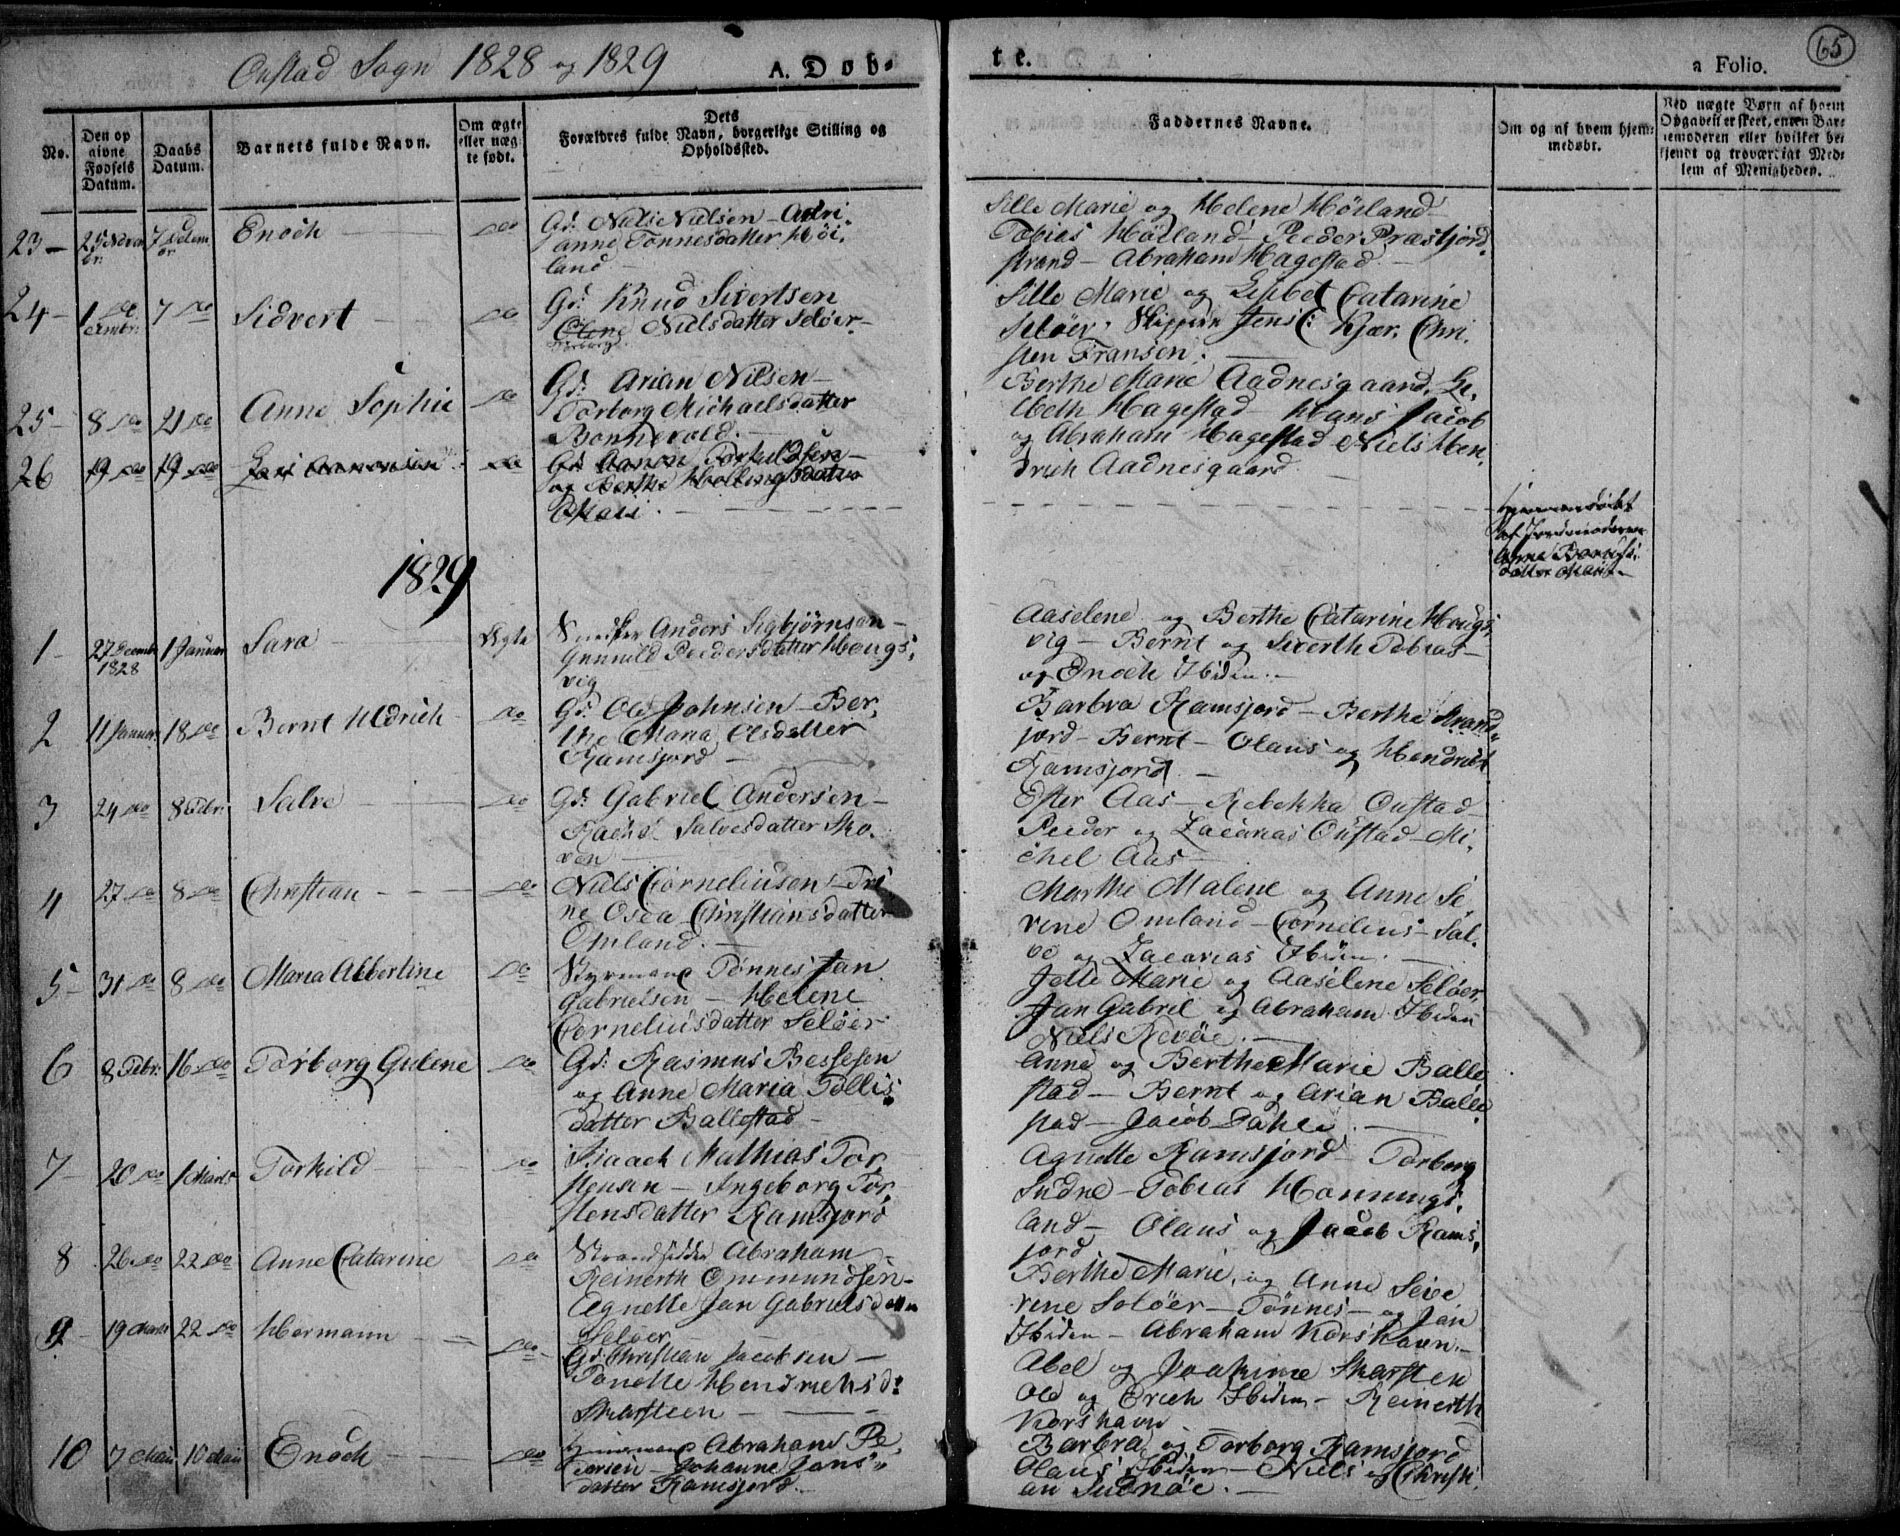 65
Oustad Sogn 1828 og 1829 A. Døb-
te.
a Folio.
No.
Den op
givne
Fødsels
Datum.
Daabs
Datum.
Barnets fulde Navn.
Om ægte
eller uæg-
te født.
Dets
Forældres fulde Navn, borgerlige Stilling og
Opholdssted.
Faddernes Navne.
Om og af hvem hjem-
medøbt.
Ved uægte Børn af hvem
Opgaven er skeet, enten Bar-
nemoderen eller hvilket be-
kjendt og troværdigt Med-
lem af Menigheden.
23 - 25 Novem br. 7 Decem br. Enoch do
Gd: Niels Nielsen - Adri
anne Tønnesdatter Høi
land
Sille Marie og Helene Høiland
Tobias Høiland - Peeder Præstfjord
strand - Abraham Hagestad
24 - 1 De cembr: 7 do Sidvert do
Gd: Knud Sivertsen
Olene Nielsdatter Seløer
Torborg
Sille Marie og Lisbet Catarine
Seløer, Skipperen Jens C: Kjær, Chri
sten Fransen.
25 - 8 do 21 do Anne Sophie do
Gd: Arian Nilsen
Torborg Michaelsdatter
Bonnevold.
Berthe Marie Aadnesgaard, Li
sbeth Hagestad - Hans Jacob
og Abraham Hagestad Niels Hen
drich Aadnesgaard
26 19 do 19 do do
Gd: Aanon Torkildsen
og Berthe Hellingsdatter
hjemmedøbt
af Jordmoderen
1829
1 - 27 Decembr 1828 1 Januar Sara Ægte
Snedker Anders Sigbjørnsen
Gunnild Peedersdatter Hougs
vig
Aaselene og Berthe Catarine Hougs
vig - Bernt og Siverth Tobias
og Enoch Ibiden
2 11 Januar 18 do Bernt Uldrich do
Gd: Ole Johnsen - Ber
the Maria Olsdatter
Ramsjord
Barbra Ramsjord - Berthe Strand
jord - Bernt - Olaus og Hendrich
Ramsjord.
3 24 do 8 Febr: Salve do
Gd: Gabriel Andersen
Rachel Salvesdatter Sko
ven
Ester Aas - Rebekka Oustad
Peeder og Zacarias Oustad - Mi
chel Aas
4 27 do 8 do Christian do
Niels Corneliusen - Tri
ne Osea Christiansdatter
Omland.
Marthe Malene og Anne Se
verine Omland - Cornelius - Sal
ve og Zacarias Ibiden.
5 - 31 do 8 do Maria Albertine do
Styrmand Tønnes Jan
Gabrielsen - Helene
Corneliusdatter Seløer
Jelle Marie og Aaselene Seløer
Jan Gabriel og Abraham Ibiden
Niels Revøe.
6 8 Febr: 16 do Torborg Gulene do
Gd: Rasmus Bessesen
og Anne Maria Tollis
datter Ballestad
Anne og Berthe Marie Balle
stad - Bernt og Arian Balle
stad - Jacob Dahle.
7 - 20 do 1 Marts Torkild do
Isaach Mathias Tor
stensen - Ingeborg Tor
stensdatter Ramsjord
Agnette Ramsjord - Torborg
Sudne - Tobias Honnings
land - Olaus og Jacob Rams
jord
8 26 do 22 do Anne Catarine do
Strandsidder Abraham
Reinerth Ommundsen
Agnette Jan Gabrielsdatter
Seløer
Berthe Marie, og Anne Seve
rine Seløer - Tønnes - og Jan
Ibiden - Abraham Korshavn
9 - 19 Marts 22 do Hermann do
Gd: Christian Jacobsen
Tonette Hendrichsd:
Skarsteen
Abel og Joachime Skarsten
Ole og Erich Ibiden - Reinerth
Korshavn
10 7 Maii 10 Maii Enoch do
Abraham Pe
dersen - Johanne Jans
datter Ramsjord
Barbra og Torborg Ramsjord
Olaus Ibiden - Niels og Christi
an Sudnøe.